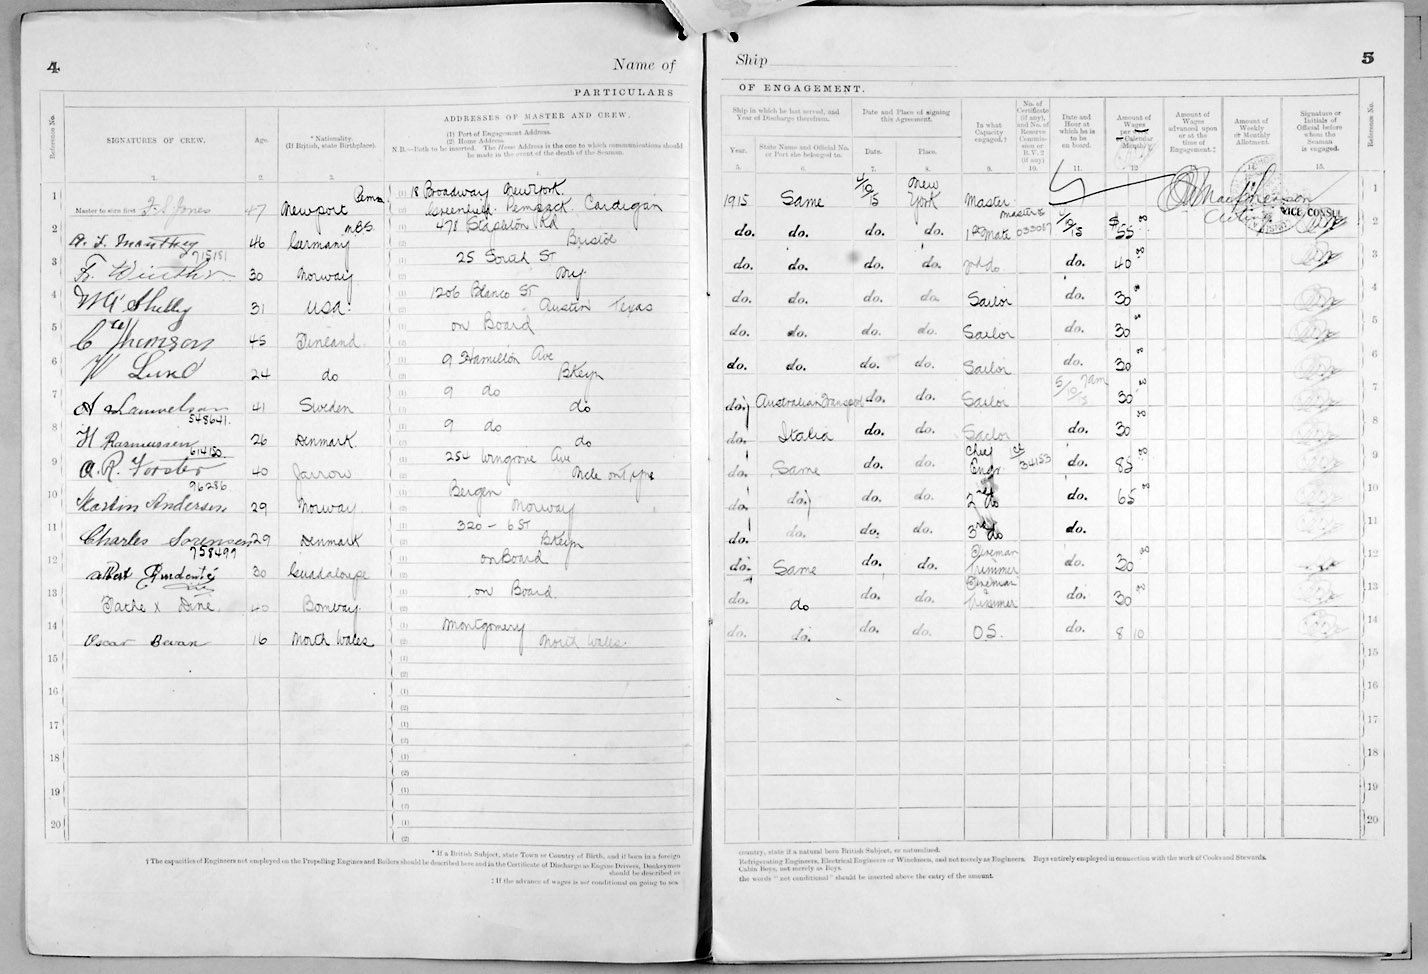 4
Name of
PARTICULARS
Reference No.
SIGNATURES OF CREW.
Age.
* Nationality.
(If British, state Birthplace).
ADDRESSES OF MASTER AND CREW.
(1) Port of Engagement Address.
(2) Home Address.
N.B.—Both to be inserted. The Home Address is the one to which communications should
be made in the event of the death of the Seaman.
1. 2. 3. 4.
1 Master to sign first 47 Newport Pem (1) 18 Broadway Newport.
(2) Cardigan
2 46 Germany (1) 478 Rd
(2) Bristol
715181
3 30 Norway (1) 25 South St
(2) NY
4 31 USA. (1) 1206 Blanco St
(2) Austin Texas
5 C Thomson 45 Finland. (1) on Board
6 W Lund 24 do (1) 9 Hamilton Ave
(2) Bklyn
7 A 41 Sweden (1) 9 do
(2) do
548641.
8 H Rasmussen 26 Denmark (1) 9 do
(2) do
614150.
9 A. R. Forster 40 Jarrow (1) 254 Wingrove Ave
(2) Ncle on Tyne
96286
10 Martin Andersen 29 Norway (1) Bergen
(2) Norway
11 Charles Sorensen 29 Denmark (1) 320 - 6 St
(2) Bklyn
758497
12 30 Guadaloupe on Board
13 x 40 Bombay on Board
14 Oscar Bevan 16 North Wales (1) Montgomery
(2) North Wales.
15
16
17
18
19
20
* If a British Subject, state Town or Country of Birth, and if born in a foreign
† The capacities of Engineers not employed on the Propelling Engines and Boilers should be described here and in the Certificate of Discharge as Engine Drivers, Donkeymen
should be described as
‡ If the advance of wages is not conditional on going to sea
Ship
5
OF ENGAGEMENT.
Ship in which he last served, and
Year of Discharge therefrom.
Year.
State Name and Official No.
or Port she belonged to.
Date and Place of signing
this Agreement.
Date.
Place.
In what
Capacity
engaged.†
No. of
Certificate
(if any),
and No. of
Reserve
Commis-
sion or
R.V. 2
(if any)
Date and
Hour at
which he is
to be
on board.
Amount of
Wages
per Calendar
Month.
Amount of
Wages
advanced upon
or at the
time of
Engagement.‡
Amount of
Weekly
or Monthly
Allotment.
Signature or
Initials of
Official before
whom the
Seaman
is engaged.
Reference No.
5. 6. 7. 8. 9. 10. 11. 12. 13. 14. 15.
1915 Same 4/10/15 New York Master Acting VICE CONSUL 1
do. do. do. do. 1st Mate masters 033087 4/10/15 $ 55 2
do. do. do. do. 2nd do. do. 40 3
do. do. do. do. Sailor do. 30 4
do. do. do. do. Sailor do. 30 5
do. do. do. do. Sailor do. 30 6
do. Australian Transport do. do. Sailor 5/10/15 7am 30 7
do. Italia do. do. Sailor do. 30 8
do. Same do. do. Chief Engr 34153 do. 85 9
do. do. do. do. 2nd do do. 65 10
do. do. do. do. 3rd do do. 11
do. Same do. do. Fireman Trimmer do. 30 12
do. do do. do. Fireman & Trimmer do. 30 13
do. do. do. do. O.S. do. 8 10 14
15
16
17
18
19
20
country, state if a natural born British Subject, or naturalised.
Refrigerating Engineers, Electrical Engineers or Winchmen, and not merely as Engineers. Boys entirely employed in connection with the work of Cooks and Stewards.
Cabin Boys, not merely as Boys.
the words "not conditional" should be inserted above the entry of the amount.